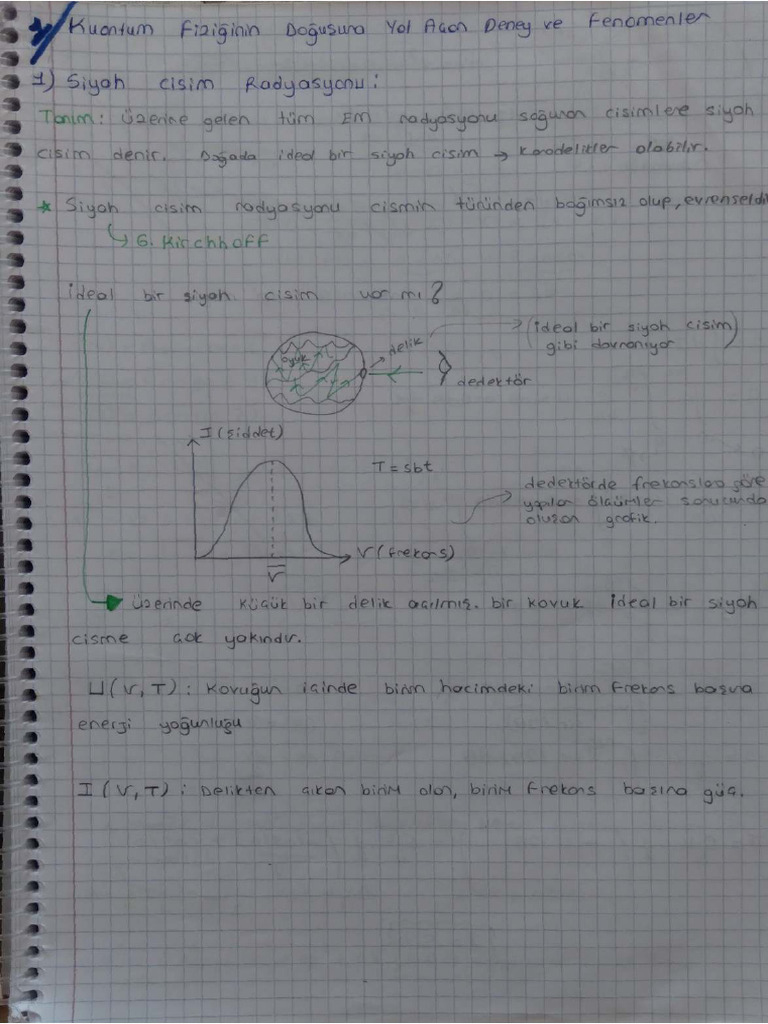 Kuantum Fiziğinin Doğuşuna Yol Açan Deney ve Fenomenler
1) Siyah cisim Radyasyonu:
Tanım: üzerine gelen tüm EM radyasyonu soğuran cisimlere siyah
cisim denir. Doğada ideal bir siyah cisim → karadelikler olabilir.
* Siyah cisim radyasyonu cismin türünden bağımsız olup, evrenseldir
↳ G. Kirchhoff
ideal bir siyah cisim var mı?
oyuk
delik
(ideal bir siyah cisim)
gibi davranıyor
dedektör
I (şiddet)
T = sbt
dedektörde frekanslara göre
yapılan ölçümler sonucunda
oluşan grafik.
ν (frekans)
ν̅
üzerinde küçük bir delik açılmış. bir kovuk ideal bir siyah
cisme çok yakındır.
U(ν, T) : Kovuğun içinde birim hacimdeki birim frekans başına
enerji yoğunluğu
I (ν, T) : Delikten çıkan birim alan, birim frekans başına güç.